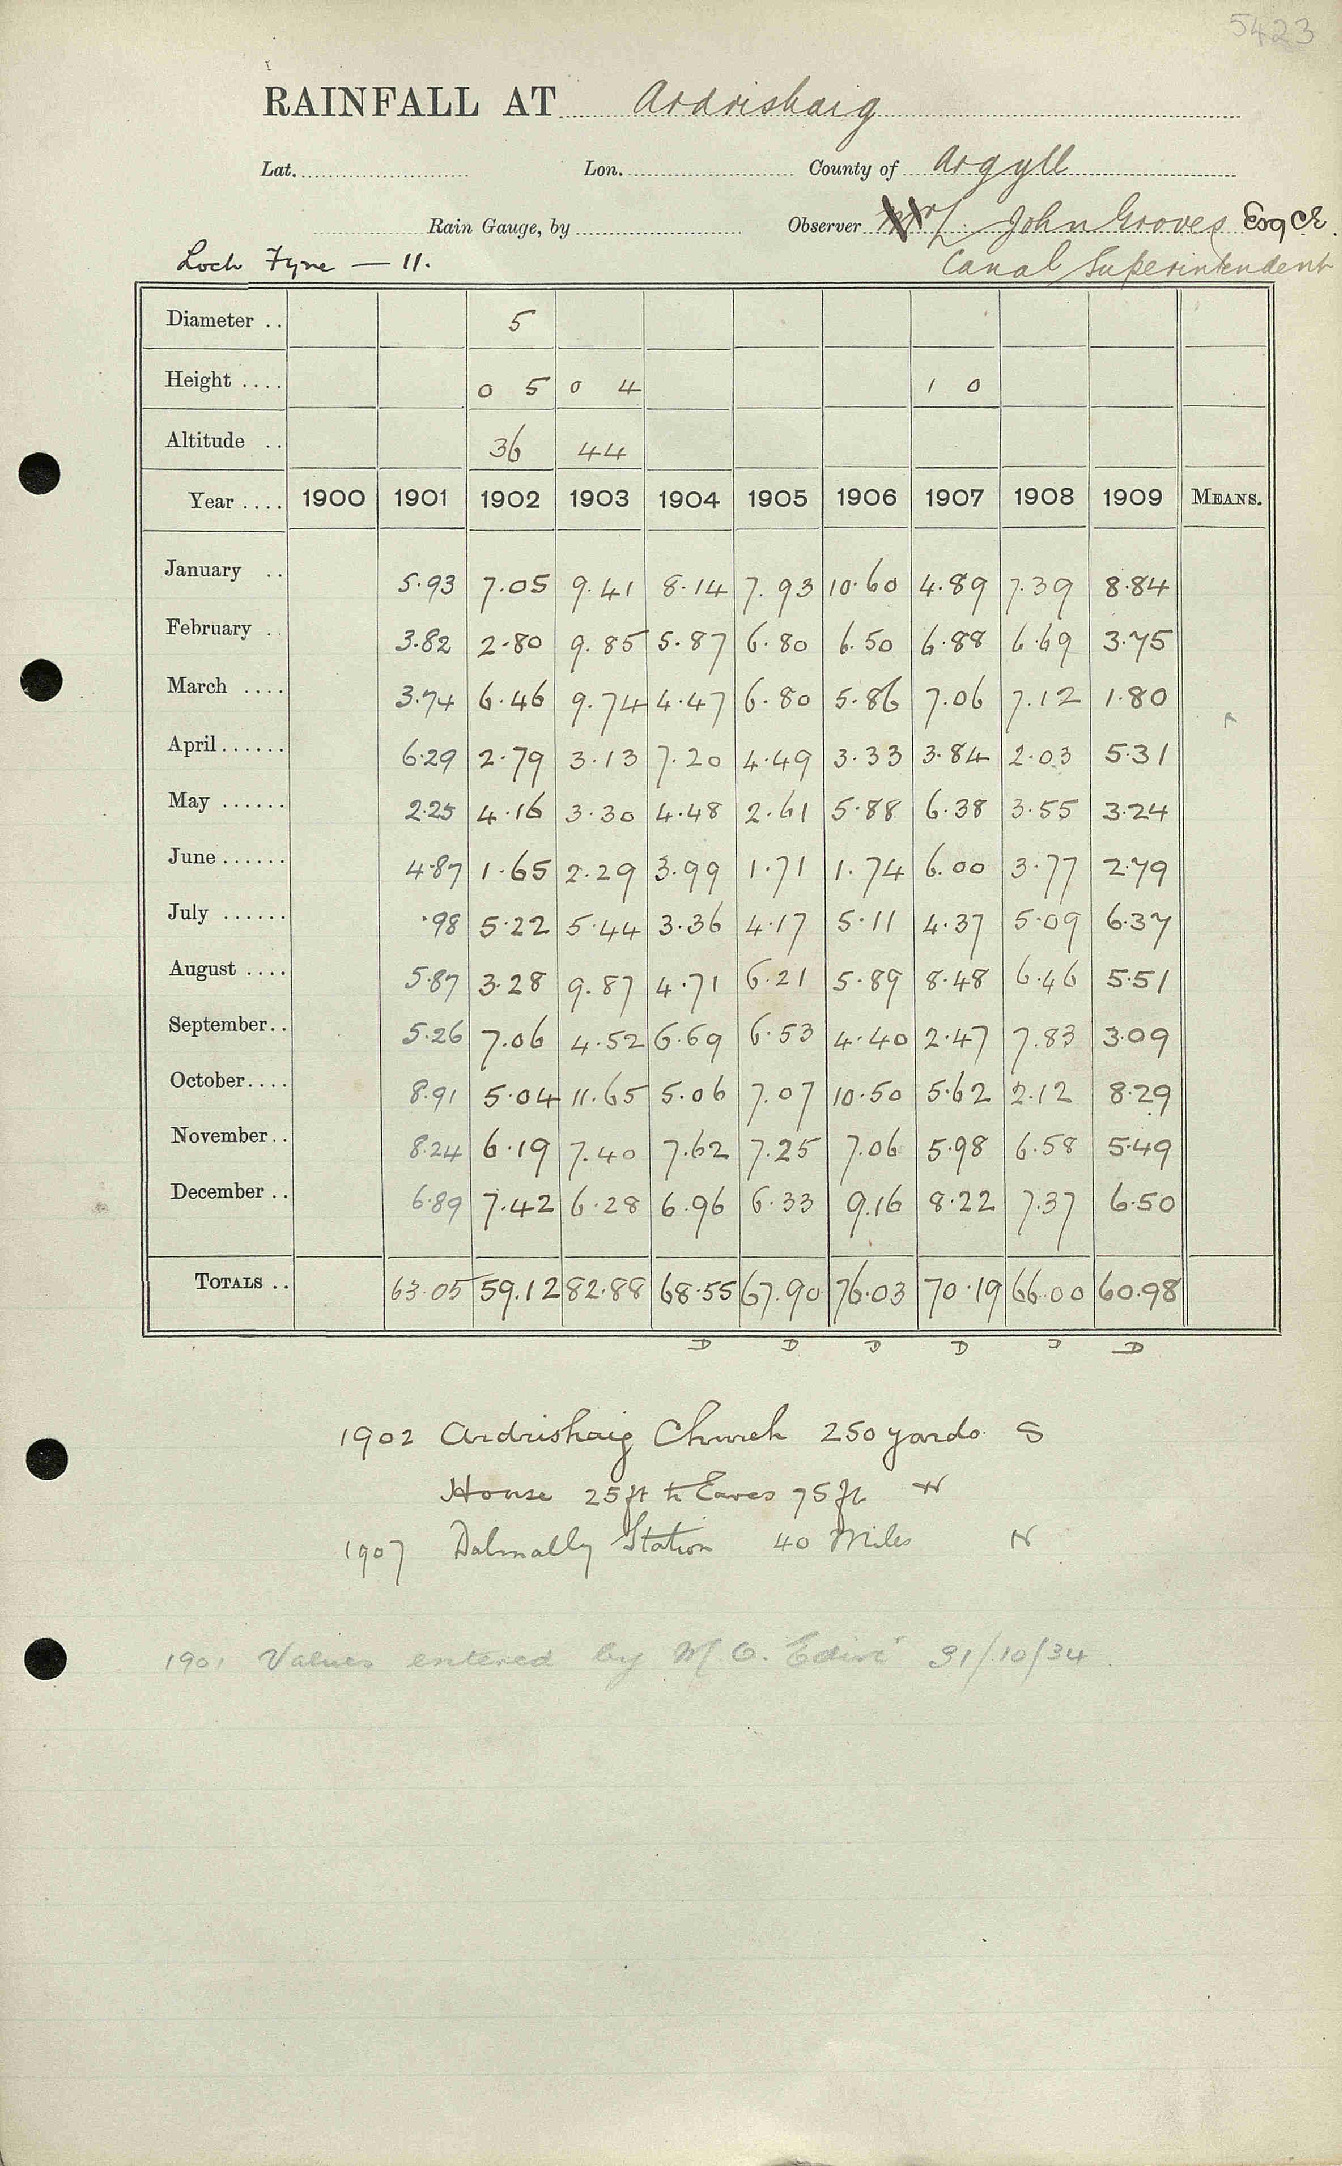 5423
RAINFALL AT Ardrishaig
Lat. Lon. County of Argyll
Rain Gauge, by Observer John Groves Esq CE.
Loch Fyne — 11. Canal Superintendent
Diameter .. 5
Height .... 0 5 0 4 1 0
Altitude .. 36 44
Year .... 1900 1901 1902 1903 1904 1905 1906 1907 1908 1909 MEANS.
January .. 5.93 7.05 9.41 8.14 7.93 10.60 4.89 7.39 8.84
February . 3.82 2.80 9.85 5.87 6.80 6.50 6.88 6.69 3.75
March .... 3.74 6.46 9.74 4.47 6.80 5.86 7.06 7.12 1.80
April...... 6.29 2.79 3.13 7.20 4.49 3.33 3.84 2.03 5.31
May ...... 2.25 4.16 3.30 4.48 2.61 5.88 6.38 3.55 3.24
June...... 4.87 1.65 2.29 3.99 1.71 1.74 6.00 3.77 2.79
July ...... .98 5.22 5.44 3.36 4.17 5.11 4.37 5.09 6.37
August .... 5.87 3.28 9.87 4.71 6.21 5.89 8.48 6.46 5.51
September.. 5.26 7.06 4.52 6.69 6.53 4.40 2.47 7.83 3.09
October.... 8.91 5.04 11.65 5.06 7.07 10.50 5.62 2.12 8.29
November.. 8.24 6.19 7.40 7.62 7.25 7.06 5.98 6.58 5.49
December .. 6.89 7.42 6.28 6.96 6.33 9.16 8.22 7.37 6.50
TOTALS .. 63.05 59.12 82.88 68.55 67.90 76.03 70.19 66.00 60.98
D D D D D D
1902 Ardrishaig Church 250 yards S
House 25 ft to Eaves 75 ft W
1907 Dalmally Station 40 Miles N
1901 Values entered by M.O. Edin' 31/10/34.